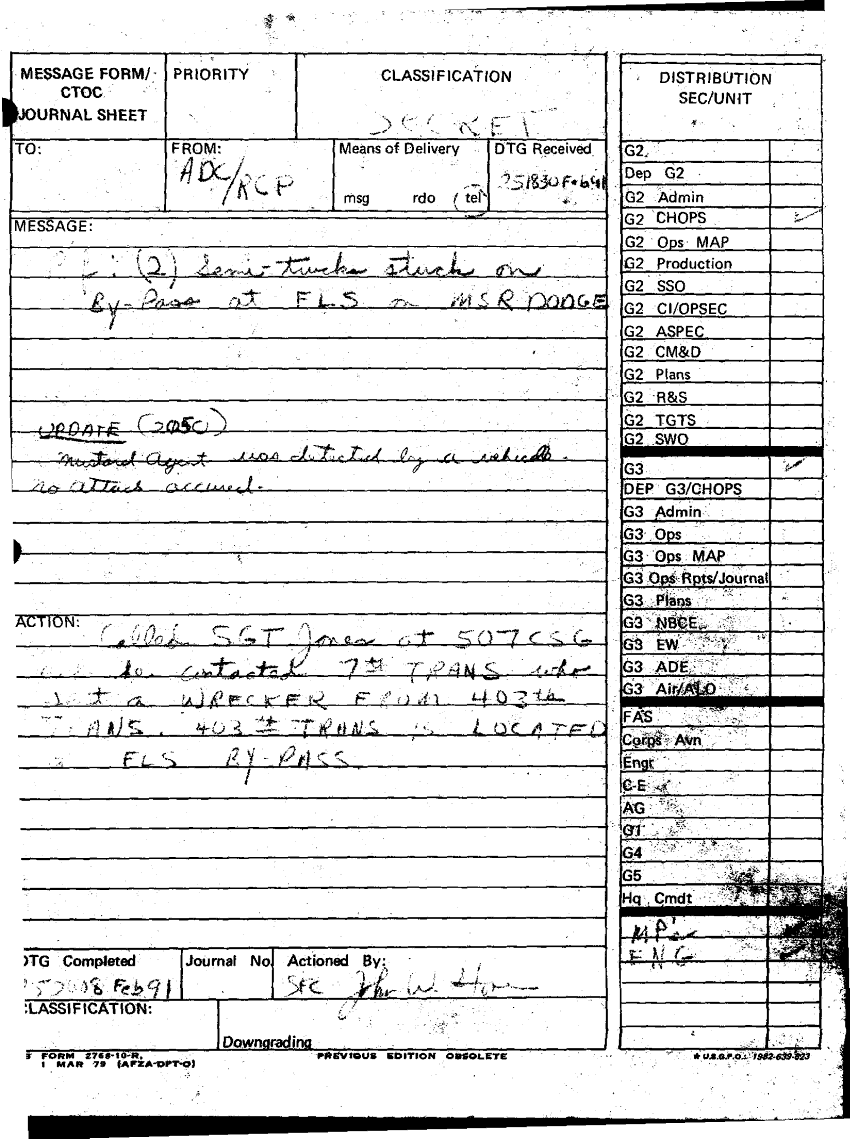 MESSAGE FORM/
CTOC
JOURNAL SHEET
PRIORITY
CLASSIFICATION
SECRET
DISTRIBUTION
SEC/UNIT
TO:
FROM:
ADC/RCP
Means of Delivery
msg rdo tel
DTG Received
251830 Feb 91
MESSAGE:
: (2) Semi-trucks stuck on
By-Pass at FLS on MSR DODGE
UPDATE
Mustard Agent was detected by a vehicle.
no attack accured.
ACTION:
Called SGT Jones at 507 CSG
contacted 7th TRANS who
a WRECKER FROM 403th
TRANS. 403th TRANS is LOCATED
FLS BY-PASS
DTG Completed
Feb 91
Journal No.
Actioned By:
SFC John W
CLASSIFICATION:
Downgrading
FORM 2768-10-R,
1 MAR 79 (AFZA-DPT-O)
PREVIOUS EDITION OBSOLETE
G2
Dep G2
G2 Admin
G2 CHOPS
G2 Ops MAP
G2 Production
G2 SSO
G2 CI/OPSEC
G2 ASPEC
G2 CM&D
G2 Plans
G2 R&S
G2 TGTS
G2 SWO
G3
DEP G3/CHOPS
G3 Admin
G3 Ops
G3 Ops MAP
G3 Ops Rpts/Journal
G3 Plans
G3 NBCE
G3 EW
G3 ADE
G3 Air/ALO
FAS
Corps Avn
Engr
C-E
AG
G1
G4
G5
Hq Cmdt
MP's
ENG
★ U.S.G.P.O.: 1982-639-823